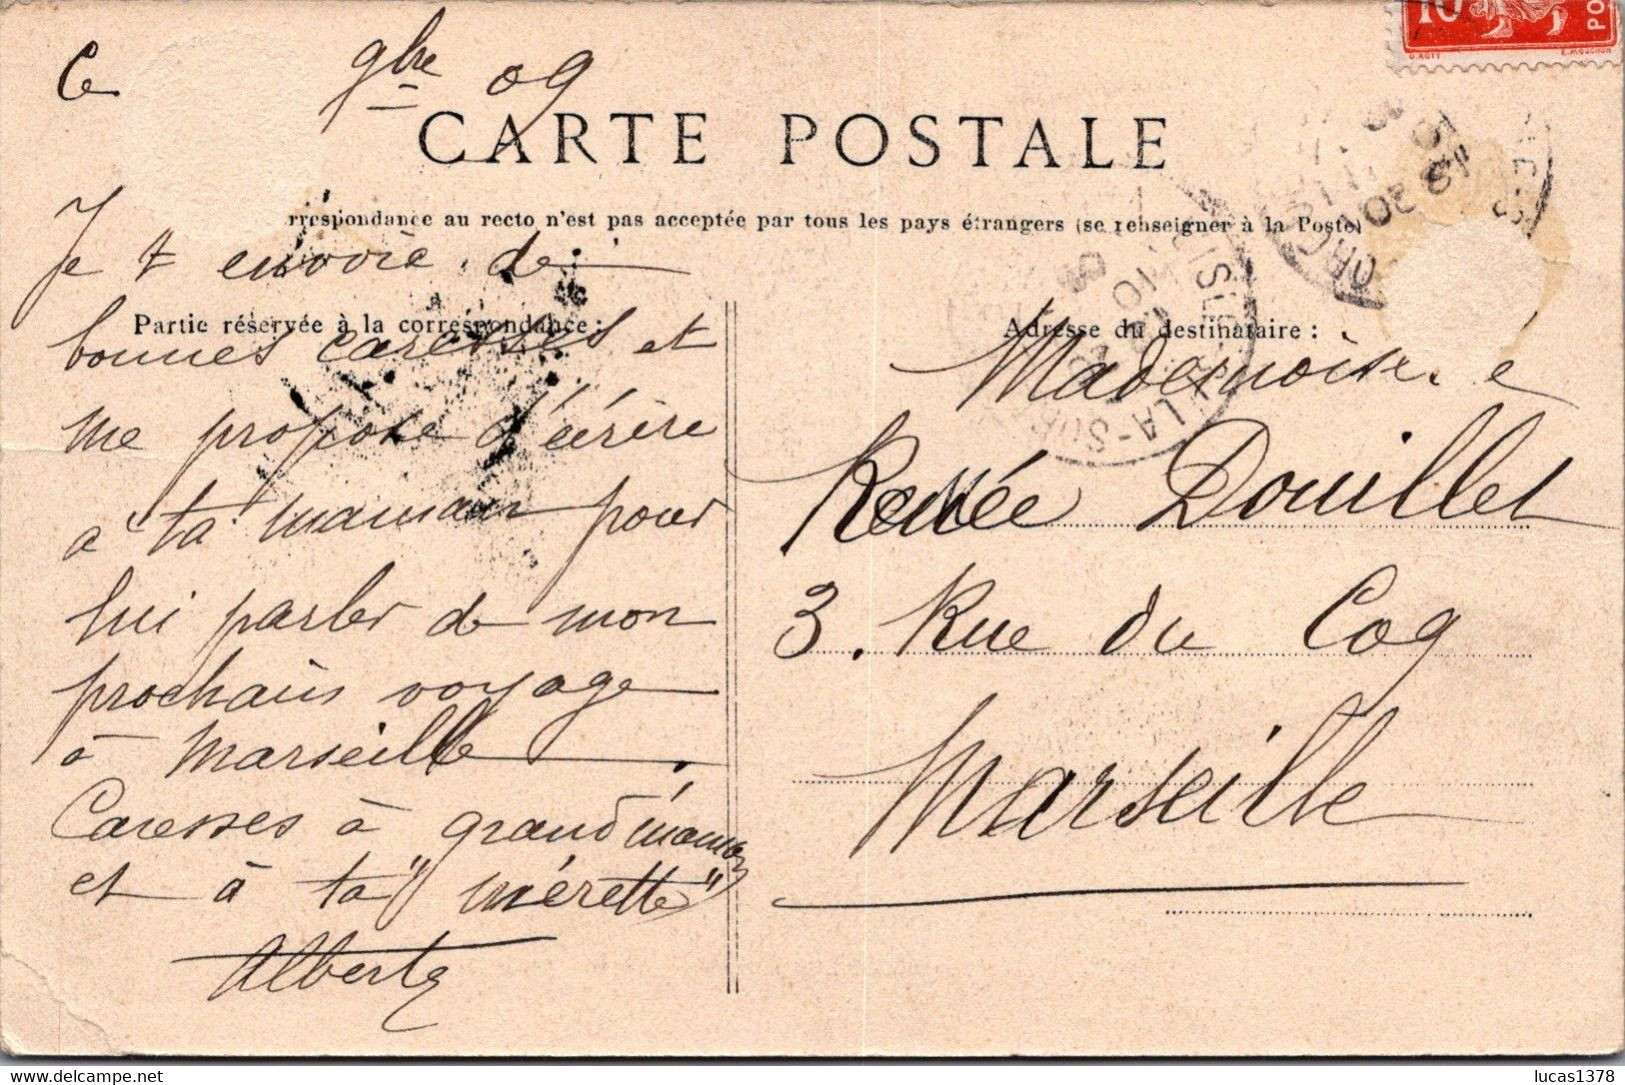 Ce 9bre 09
10
PO
O. ROTY
E. MOUCHON
CARTE POSTALE
rrespondance au recto n'est pas acceptée par tous les pays étrangers (se renseigner à la Poste)
Partie réservée à la correspondance:
Je t envoie de
bonnes caresses et
me propose d'écrire
à ta maman pour
lui parler de mon
prochain voyage
à Marseille.
Caresses à grand'maman
et à ta "mérette"
Alberte
Adresse du destinataire :
Mademoise e
Renée Douillet
3. Rue du Coq
Marseille
LA-SUR
lucas1378